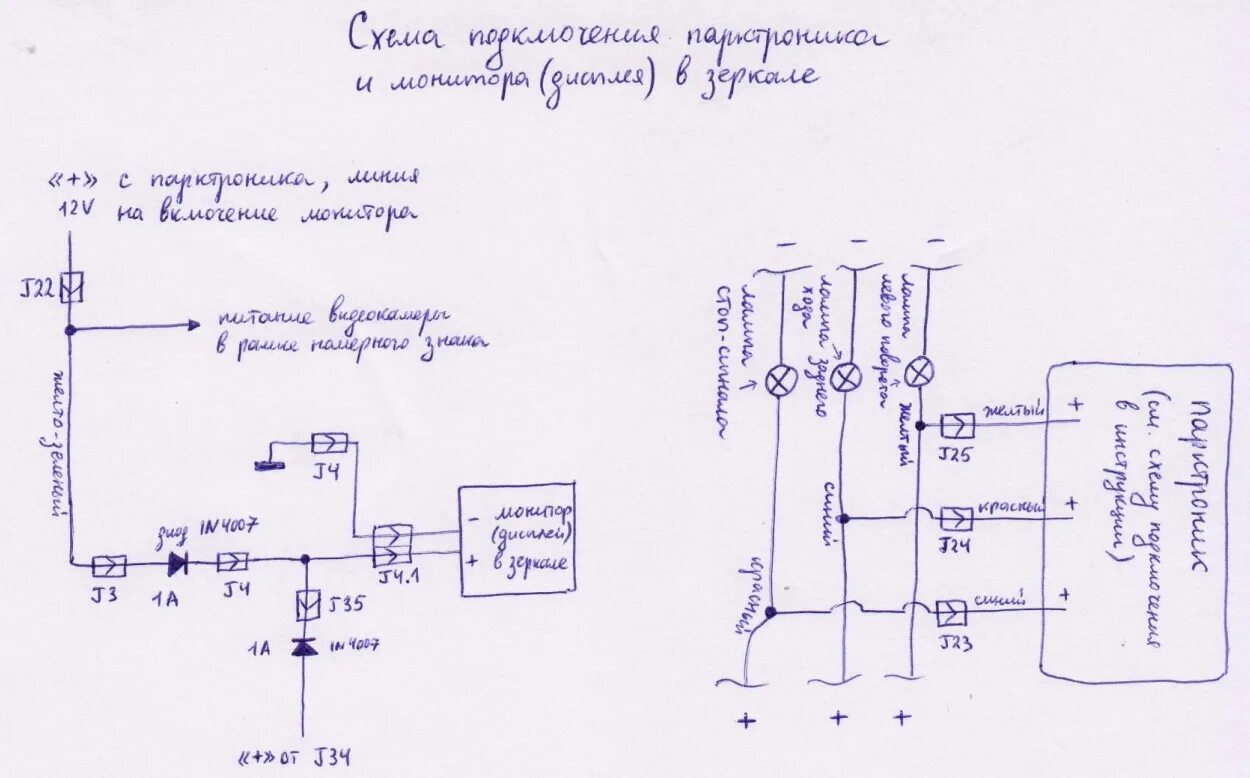 Схема подключения парктроника
и монитора (дисплея) в зеркале
«+» с парктроника, линия
12V на включение монитора
J22
питание видеокамеры
в рамке номерного знака
желто-зеленый
J4
диод 1N4007
J3
1А
J4
J4.1
- монитор
(дисплей)
+ в зеркале
J35
1А
1N4007
«+» от J34
- - -
лампа
стоп-сигнала
лампа заднего
хода
лампа
левого поворота
желтый
синий
красный
J25
желтый
+
J24
красный
+
J23
синий
+
Парктроник
(см. схему подключения
в инструкции)
+ + +